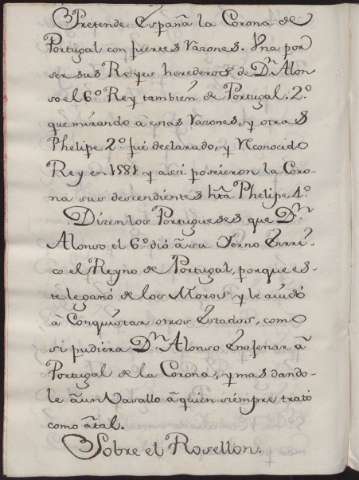 Pretende España la Corona de
Portugal con fuertes Razones. Una por
ser sus Reyes herederos de Dn. Alon
so el 6º. Rey también de Portugal. 2º.
que mirando a estas Razones, y otras
Phelipe 2º. fué declarado, y Reconocido
Rey en 1581. y assi poseieron la Coro
na sus descendientes hta. Phelipe 4º.
Dizen los Portugueses que Dn.
Alonso el 6º dió a su Yerno Enrri
co el Reyno de Portugal, porque es
te le ganó de los Moros, y le aiudó
a Conquistar otros Estados, como
si pudiera Dn. Alonso Enagenar a
Portugal de la Corona, y mas dando
le a un Vasallo a quien siempre trató
como a tal.
Sobre el Rosellon.